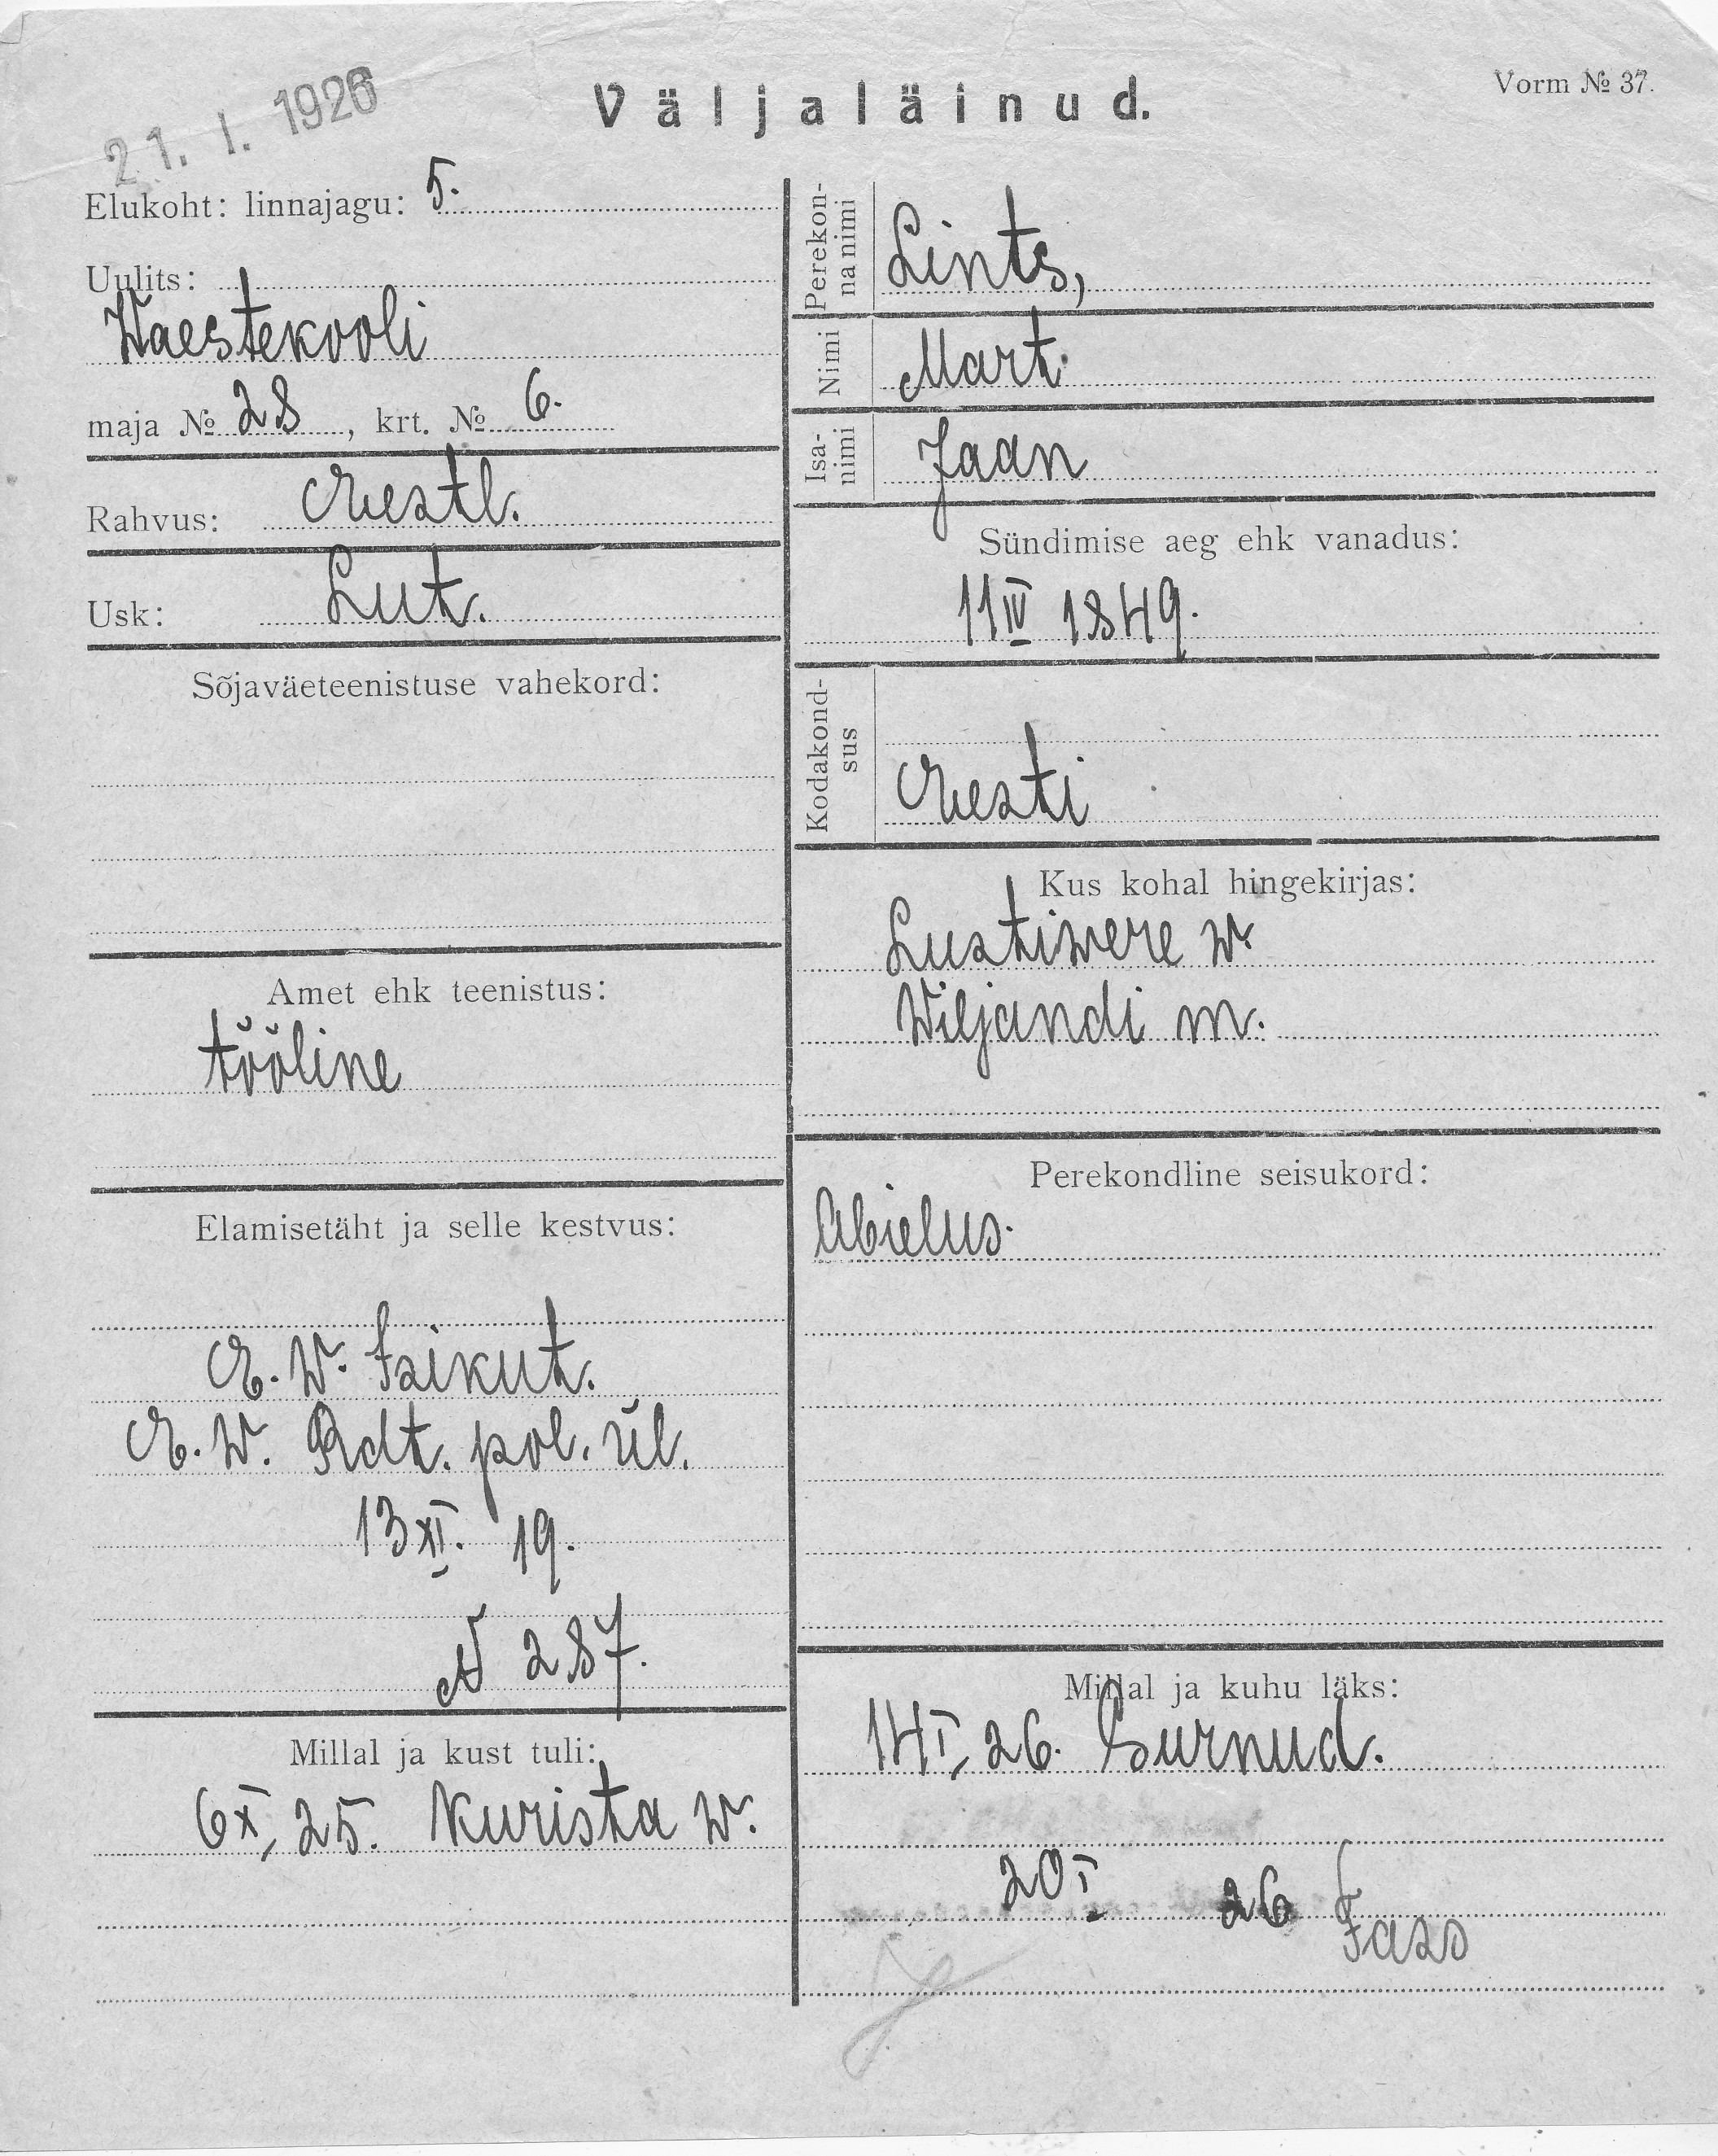 21. I. 1926
Väljaläinud.
Vorm № 37.
Elukoht: linnajagu: 5.
Uulits:
Waestekooli
maja № 28, krt. № 6.
Rahvus: Eestl.
Usk: Lut.
Sõjaväeteenistuse vahekord:
Amet ehk teenistus:
tööline
Elamisetäht ja selle kestvus:
E. W. Isikut.
E. W. Rdt. pol. ül.
13 XI. 19.
N 287.
Millal ja kust tuli:
6 X, 25. Kurista w.
Perekonnanimi
Lints,
Nimi
Mart.
Isanimi
Jaan
Sündimise aeg ehk vanadus:
11 IV 1849.
Kodakondsus
Eesti
Kus kohal hingekirjas:
Lustiwere w.
Wiljandi m.
Perekondline seisukord:
Abielus.
Millal ja kuhu läks:
14 I, 26. Surnud.
20 I 26